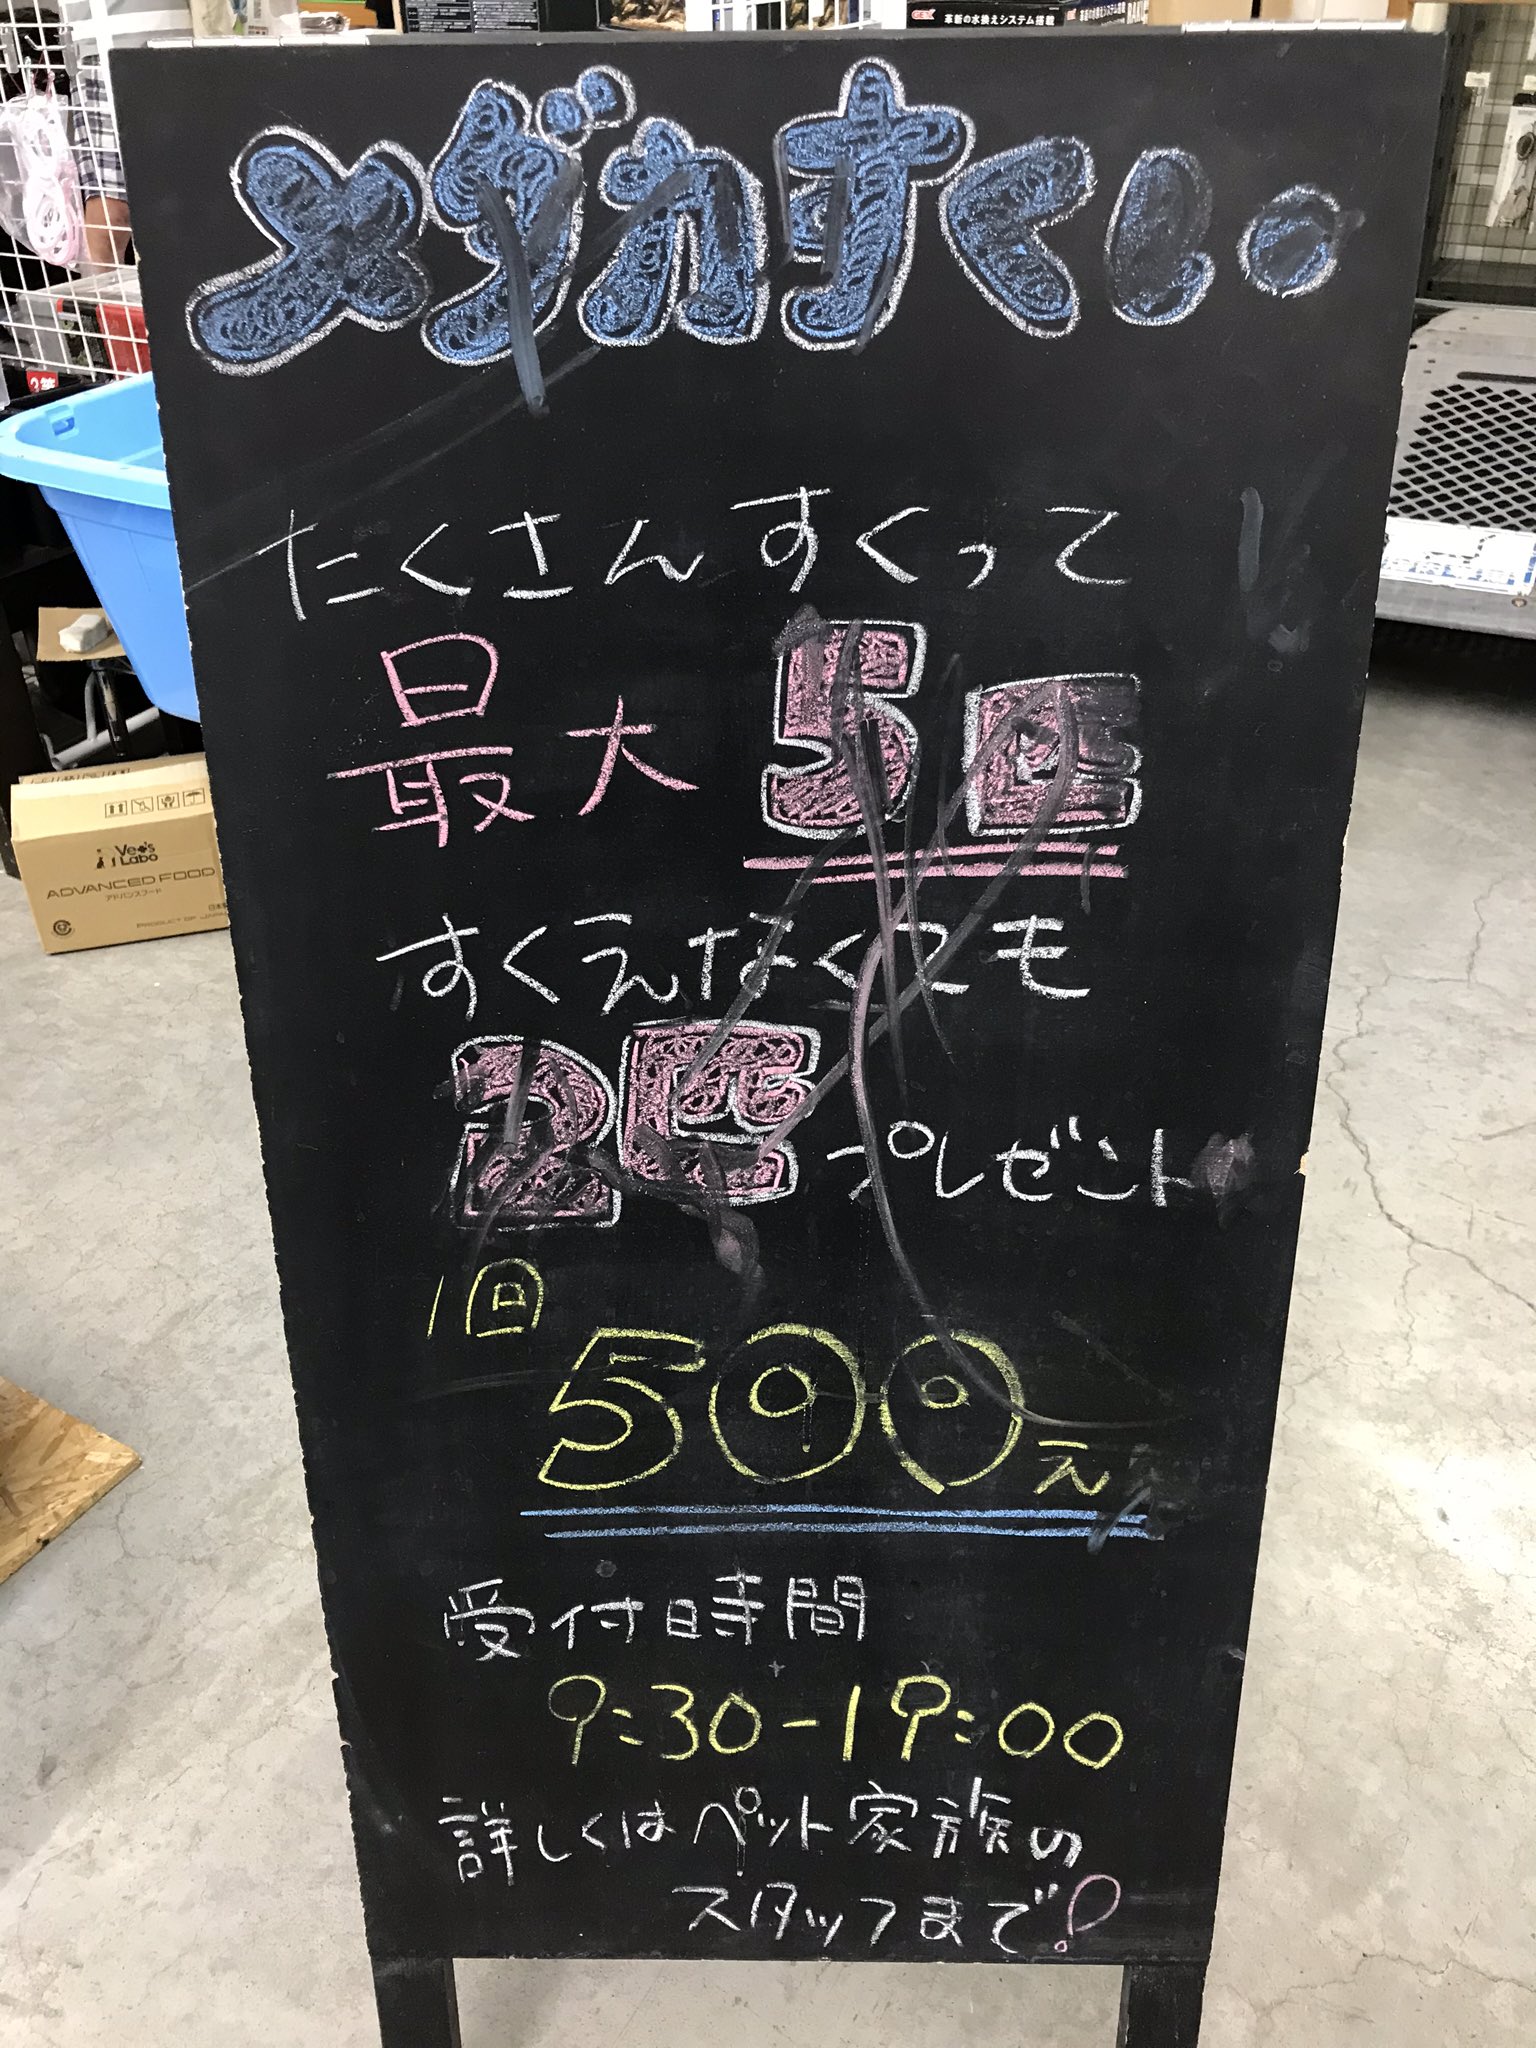 革新の水換えシステム搭載
メダカすくい
たくさんすくって
最大 5匹
すくえなくても
2匹 プレゼント
1回
500え
受付時間
9:30-19:00
詳しくはペット家族の
スタッフまで!
Veo's
Labo
ADVANCED FOOD
アドバンスフード
PRODUCT OF JAPAN